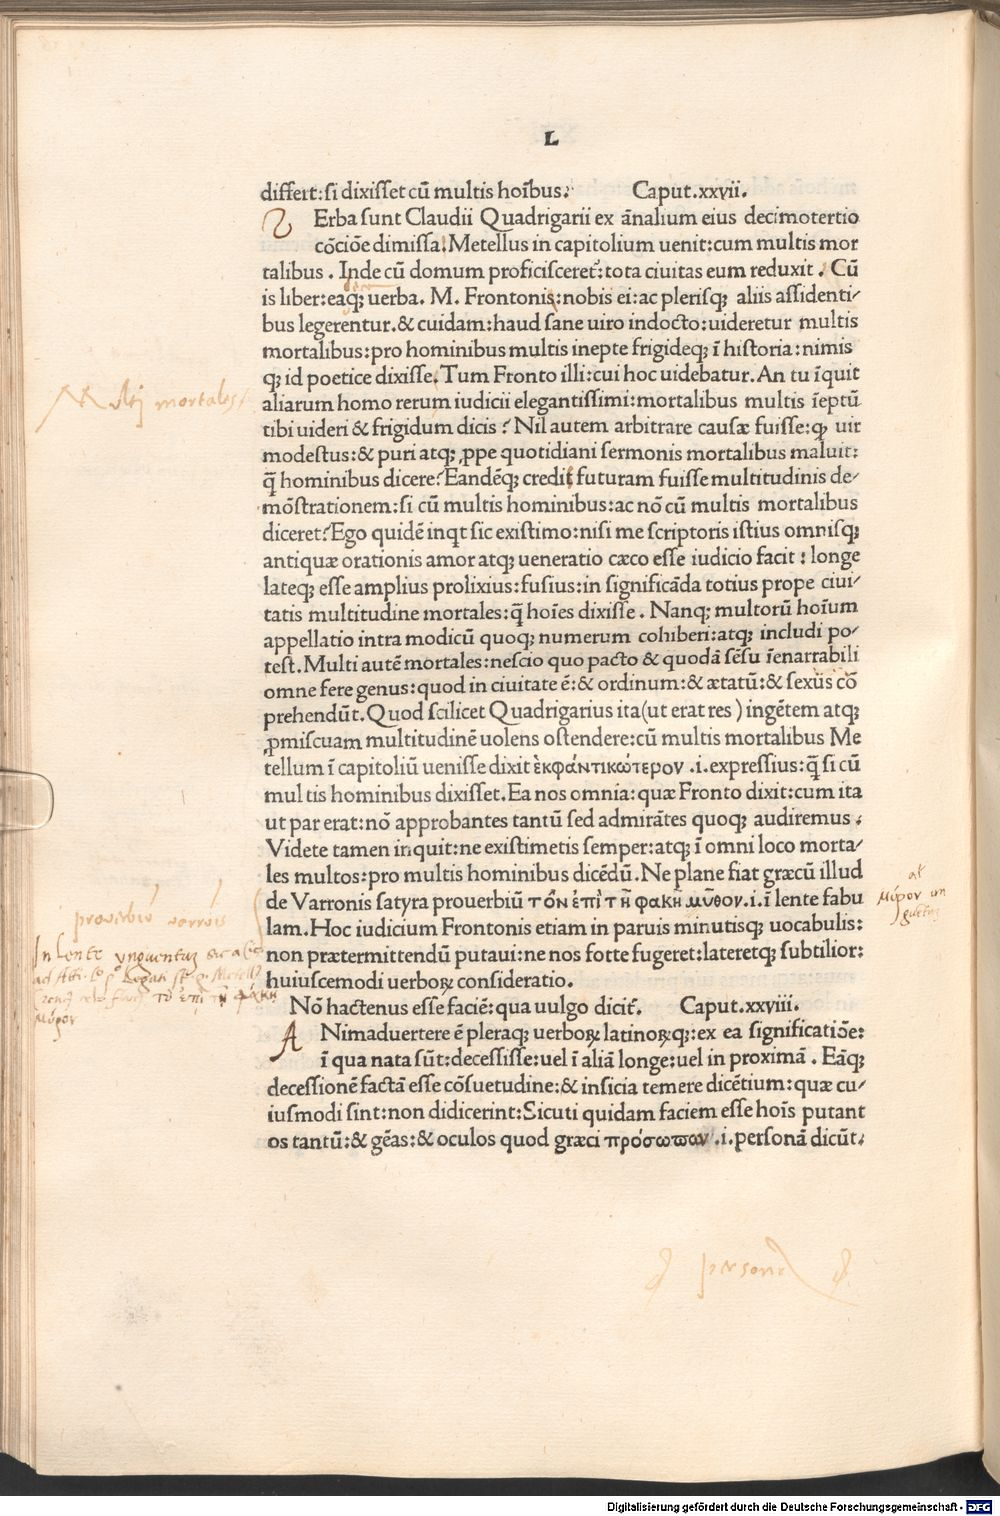 L
differt:si dixisset cū multis hoībus. Caput.xxvii.
V Erba sunt Claudii Quadrigarii ex ānalium eius decimotertio
cōciōe dimissa. Metellus in capitolium uenit:cum multis mor
talibus . Inde cū domum proficisceret᷑:tota ciuitas eum reduxit . Cū
is liber:eaqꝫ uerba. M. Frontonis:nobis ei:ac plerisqꝫ aliis assidenti/
bus legerentur.& cuidam:haud sane uiro indocto:uideretur multis
mortalibus:pro hominibus multis inepte frigideqꝫ ī historia:nimis
qꝫ id poetice dixisse. Tum Fronto illi:cui hoc uidebatur. An tu īquit
aliarum homo rerum iudicii elegantissimi:mortalibus multis īeptū
tibi uideri & frigidum dicis? Nil autem arbitrare causæ fuisse:ꝙ uir
modestus:& puri atqꝫ ꝓppe quotidiani sermonis mortalibus maluit:
q̄ hominibus dicere? Eandēqꝫ credit futuram fuisse multitudinis de/
mōstrationem:si cū multis hominibus:ac nō cū multis mortalibus
diceret? Ego quidē inqt sic existimo:nisi me scriptoris istius omnisqꝫ
antiquæ orationis amor atqꝫ ueneratio cæco esse iudicio facit: longe
lateqꝫ esse amplius prolixius:fusius:in significāda totius prope ciui/
tatis multitudine mortales:q̄ hoīes dixisse . Nanqꝫ multorū hoīum
appellatio intra modicū quoqꝫ numerum cohiberi:atqꝫ includi po/
test. Multi autē mortales:nescio quo pacto & quodā sēsu īenarrabili
omne fere genus:quod in ciuitate ē:& ordinum:& ætatū:& sexus cō
prehendūt. Quod scilicet Quadrigarius ita(ut erat res) ingētem atqꝫ
ꝓmiscuam multitudinē uolens ostendere:cū multis mortalibus Me
tellum ī capitoliū uenisse dixit ἐκφάντικώτερον .i.expressius:q̄ si cū
multis hominibus dixisset. Ea nos omnia:quæ Fronto dixit:cum ita
ut par erat:nō approbantes tantū sed admirātes quoqꝫ audiremus .
Videte tamen inquit:ne existimetis semper:atqꝫ ī omni loco morta/
les multos:pro multis hominibus dicēdū. Ne plane fiat græcū illud
de Varronis satyra prouerbiū τὸν ἐπὶ τῆ φακῆ μῦθον.i.ī lente fabu
lam. Hoc iudicium Frontonis etiam in paruis minutisqꝫ uocabulis:
non prætermittendū putaui:ne nos fotte fugeret:lateretqꝫ subtilior:
huiuscemodi uerboꝝ consideratio.
Nō hactenus esse faciē:qua uulgo dicit᷑. Caput.xxviii.
A Nimaduertere ē pleraqꝫ uerboꝝ latinoꝝqꝫ:ex ea significatiōe:
ī qua nata sūt:decessisse:uel ī aliā longe:uel in proximā . Eāqꝫ
decessionē factā esse cōsuetudine:& inscicia temere dicētium:quæ cu/
iusmodi sint:non didicerint:Sicuti quidam faciem esse hoīs putant
os tantū:& gēas:& oculos quod græci πρόσωπον .i.personā dicūt.
Multi mortales
prouerbiū varronis
In lente unguentum
μύρον
al
μύρον
persona
Digitalisierung gefördert durch die Deutsche Forschungsgemeinschaft - DFG